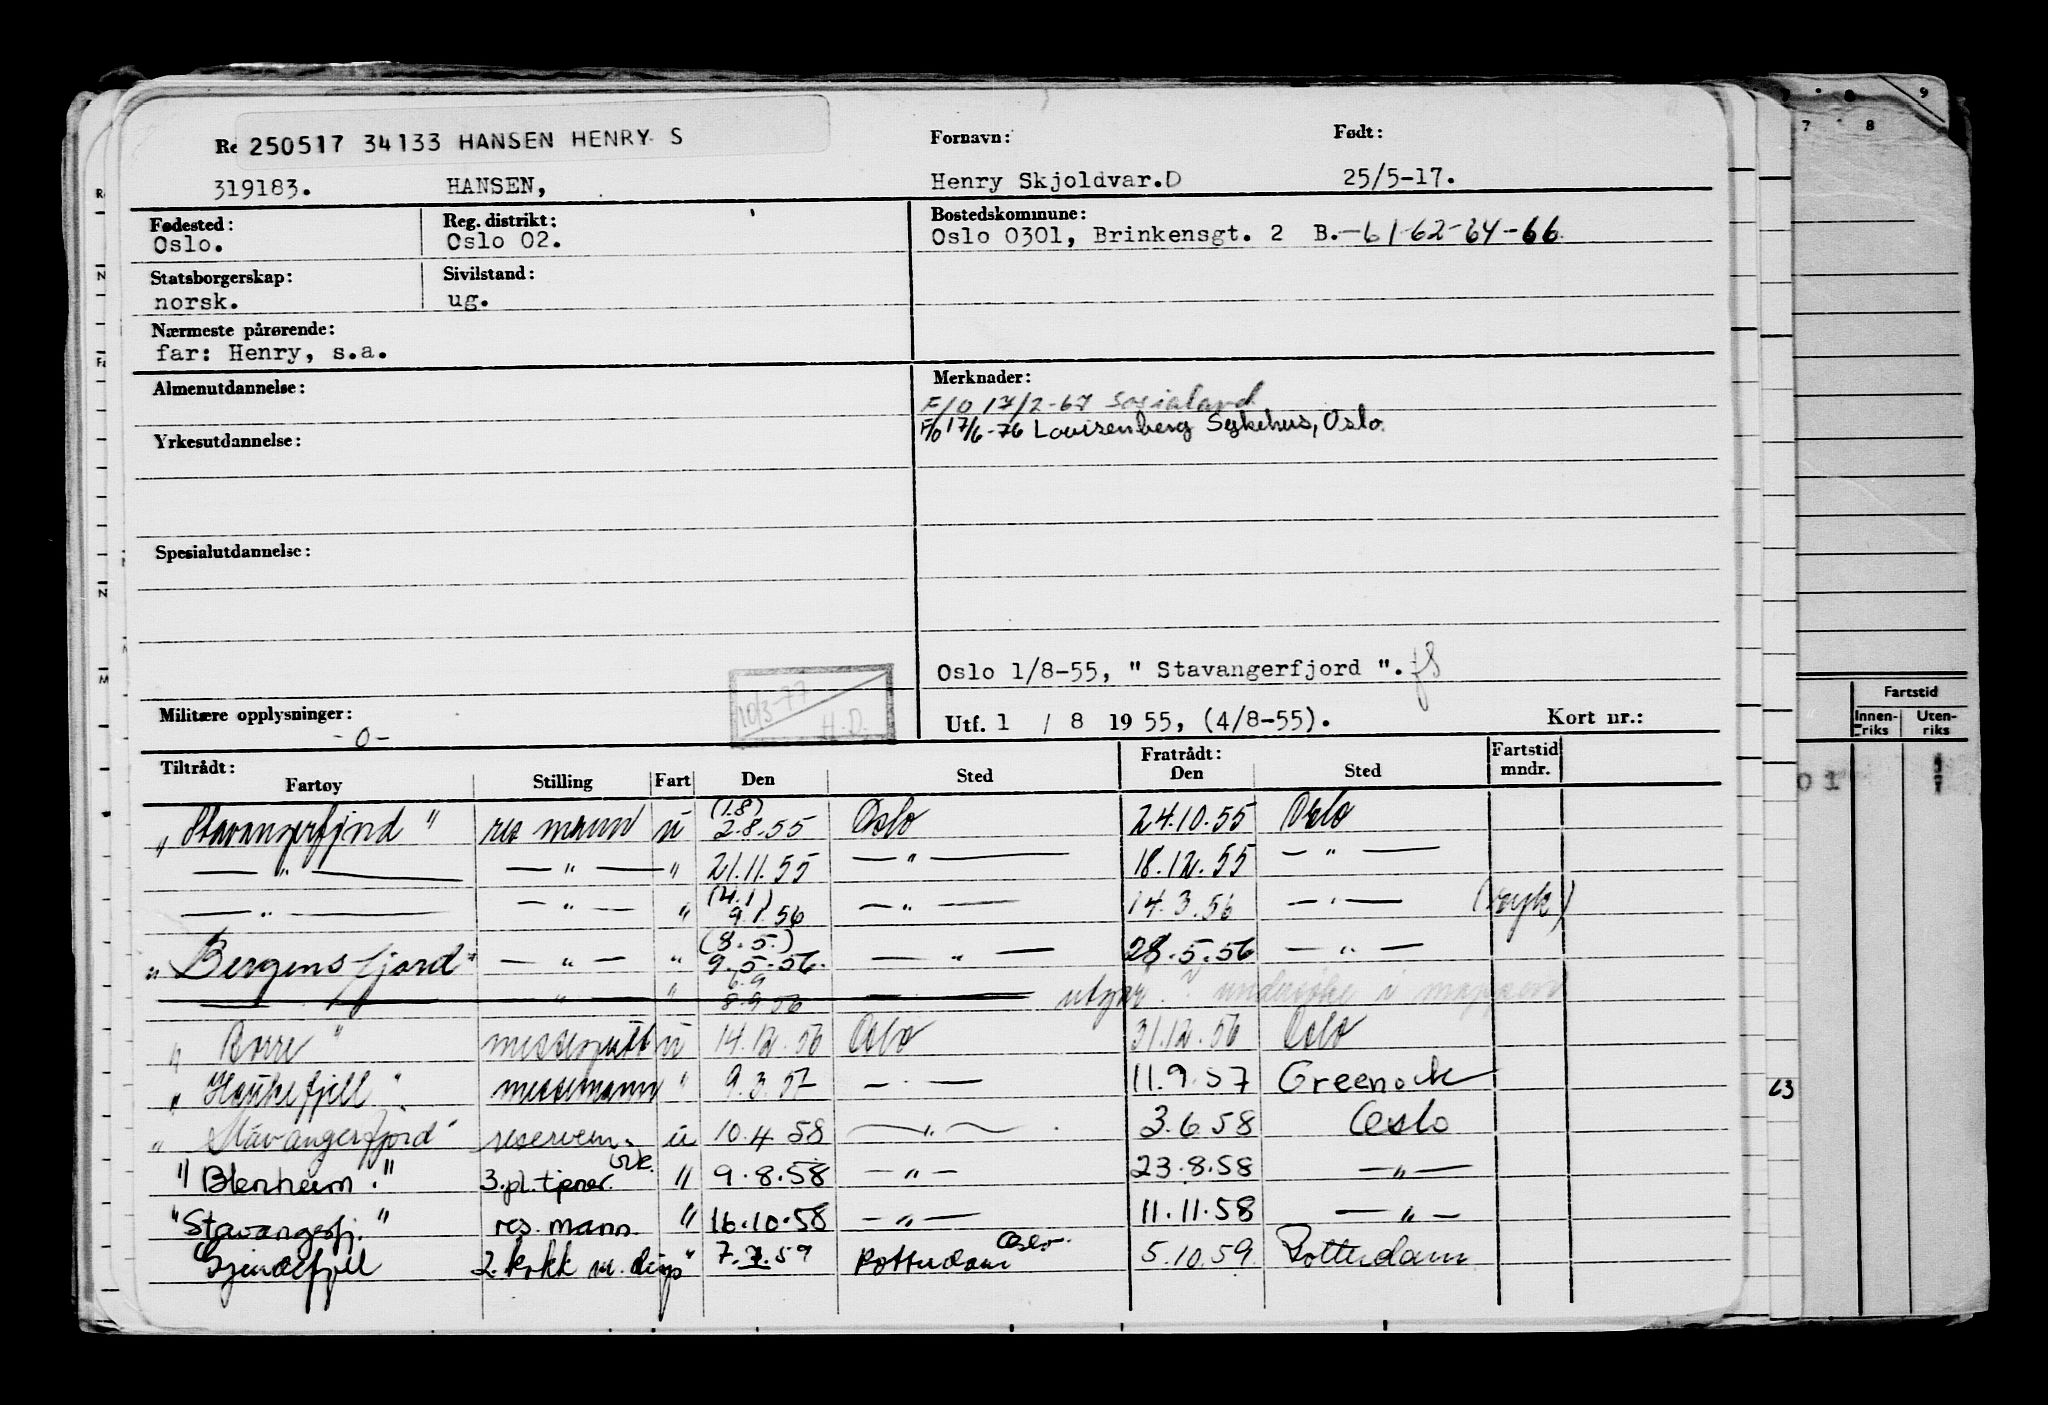 Re 250517 34133 HANSEN HENRY S
Fornavn: Født:
319183. HANSEN, Henry Skjoldvar.D 25/5-17.
Fødested: Reg. distrikt: Bostedskommune:
Oslo. Oslo 02. Oslo 0301, Brinkensgt. 2 B.-61-62-64-66
Statsborgerskap: Sivilstand:
norsk. ug.
Nærmeste pårørende:
far: Henry, s.a.
Almenutdannelse: Merknader:
F/O 17/2-67 Sosialavd
F/O 17/6-76 Lovisenberg Sykehus, Oslo.
Yrkesutdannelse:
Spesialutdannelse:
Oslo 1/8-55, " Stavangerfjord ".
10/3-77
H.D.
Militære opplysninger: Utf. 1 / 8 1955, (4/8-55). Kort nr.:
-0-
Tiltrådt: Fratrådt: Fartstid
Fartøy Stilling Fart Den Sted Den Sted mndr.
(1.8)
" Stavangerfjord " res mann u 2.8.55 Oslo 24.10.55 Oslo
— " — — " — " 21.11.55 — " — 18.12.55 — " —
(4.1)
— " — — " — " 9.1.56 — " — 14.3.56 — " — (syk)
(8.5.)
" Bergensfjord " — " — " 9.5.56. — " — 28.5.56 — " —
6.9
— " — " 8.9.56 — utgår ? undersøke i mappen
" Borre " messegutt u 14.12.56 Oslo 31.12.56 Oslo
" Haukefjell " messemann " 9.3.57 — " — 11.9.57 Greenock
" Stavangerfjord " reservem. u 10.4.58 — " — 3.6.58 Oslo
" Blenheim " 3.pl.tjener. " 9.8.58 — " — 23.8.58 — " —
"Stavangerfj." res. mann " 16.10.58 — " — 11.11.58 — " —
Oslo.
Gjendefjell 2. kokk m. disp " 7.7.59 Rotterdam 5.10.59 Rotterdam
Fartstid
Innen-riks Uten-riks
01
63
7 8 9